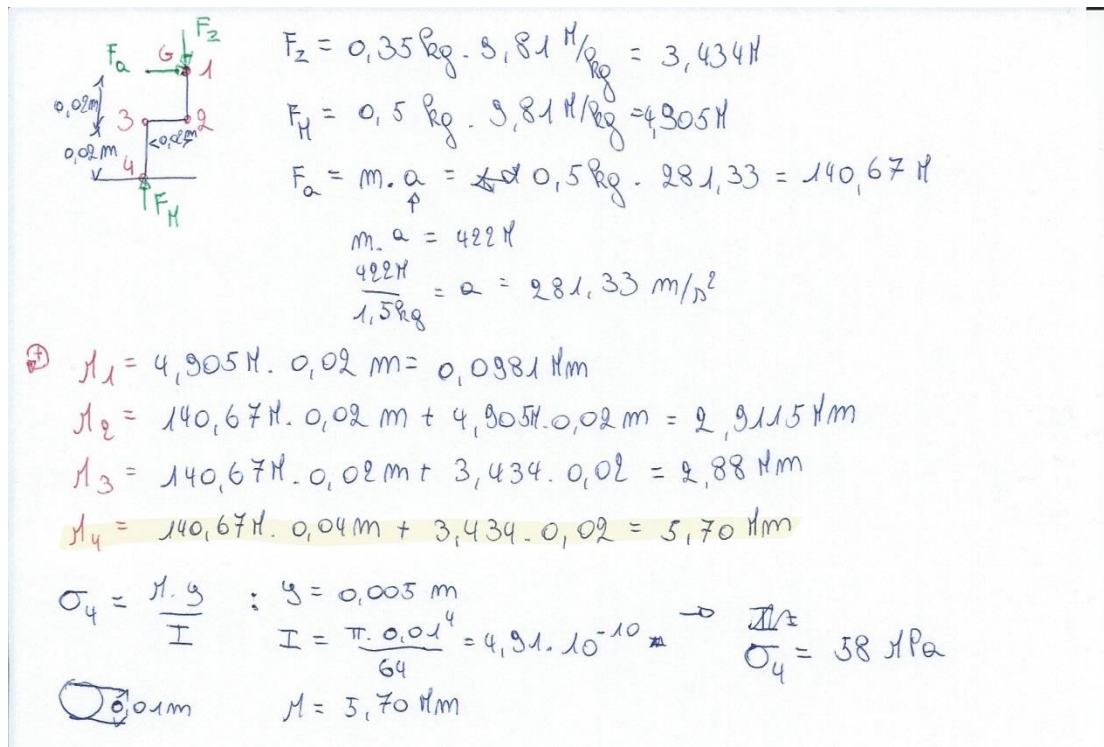 F_z
F_a G 1
0,02m
3 2
0,02m <0,02m>
4
F_N
F_z = 0,35kg . 9,81 N/kg = 3,434N
F_N = 0,5 kg . 9,81 N/kg = 4,905N
F_a = m.a = 0,5kg . 281,33 = 140,67 N
↑
m.a = 422N
422N / 1,5kg = a = 281,33 m/s²
+ M1 = 4,905N . 0,02 m = 0,0981 Nm
M2 = 140,67N . 0,02 m + 4,905N . 0,02 m = 2,9115 Nm
M3 = 140,67N . 0,02 m + 3,434 . 0,02 = 2,88 Nm
M4 = 140,67N . 0,04 m + 3,434 . 0,02 = 5,70 Nm
σ4 = M.y / I : y = 0,005 m
I = π . 0,01⁴ / 64 = 4,91 . 10⁻¹⁰ → σ4 = 58 MPa
0,01m M = 5,70 Nm